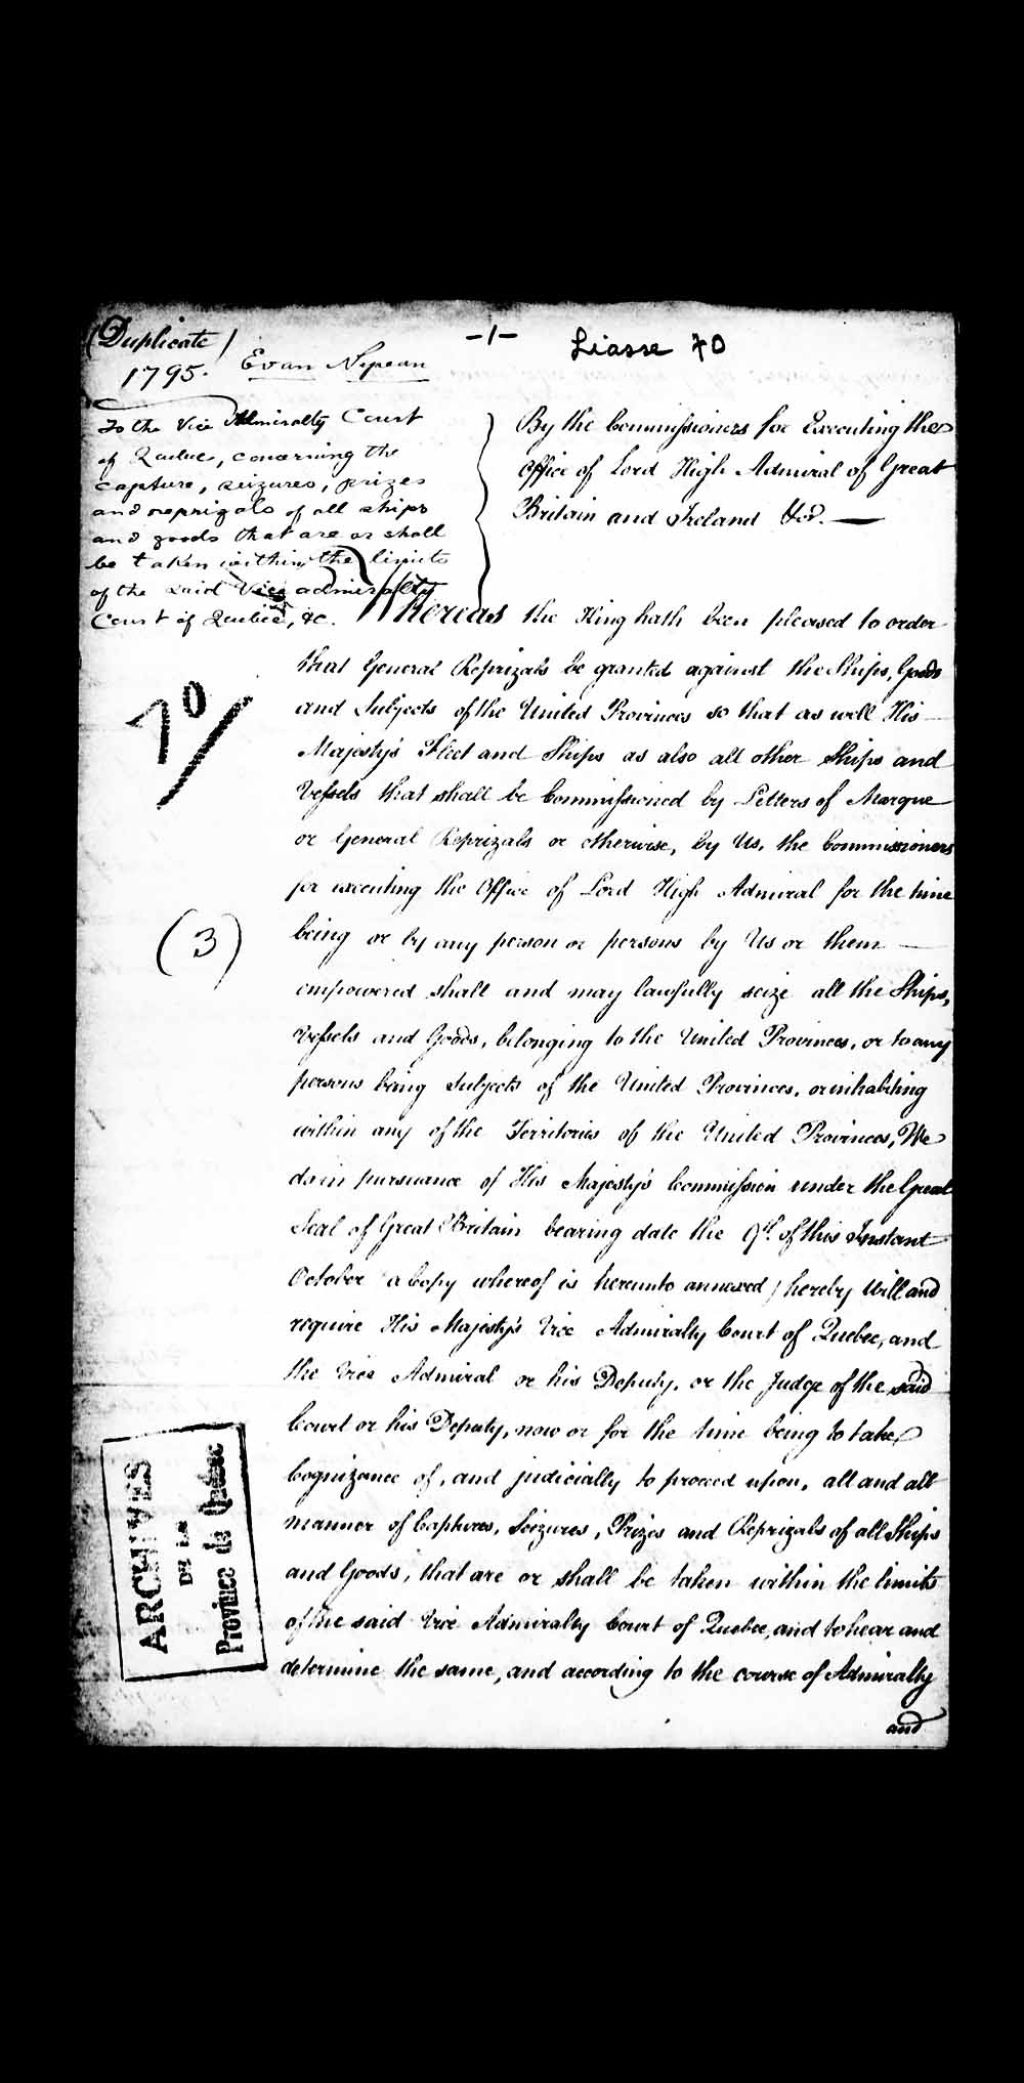 (Duplicate)
1795. Evan Nepean
-1-
Liasse 70
To the Vice Admiralty Court
of Quebec, concerning the
capture, seizures, prizes
and reprizals of all ships
and goods that are or shall
be taken within the limits
of the said Vice admiralty
Court of Quebec, &c.
70/
(3)
By the Commissioners for Executing the
Office of Lord High Admiral of Great
Britain and Ireland &ca. —
Whereas the King hath been pleased to order
that General Reprizals be granted against the Ships, Goods
and Subjects of the United Provinces so that as well His
Majesty's Fleet and Ships as also all other Ships and
Vessels that shall be Commissioned by Letters of Marque
or General Reprizals or otherwise, by Us, the Commissioners
for executing the Office of Lord High Admiral for the time
being or by any person or persons by Us or them —
empowered shall and may lawfully seize all the Ships,
Vessels and Goods, belonging to the United Provinces, or to any
persons being Subjects of the United Provinces, or inhabiting
within any of the Territories of the United Provinces, We
do in pursuance of His Majesty's Commission under the Great
Seal of Great Britain bearing date the 9th. of this Instant
October (a Copy whereof is hereunto annexed) hereby Will and
require His Majesty's Vice Admiralty Court of Quebec, and
the Vice Admiral or his Deputy, or the Judge of the said
Court or his Deputy, now or for the time being to take
Cognizance of, and judicially to proceed upon, all and all
manner of Captures, Seizures, Prizes and Reprizals of all Ships
and Goods, that are or shall be taken within the limits
of the said Vice Admiralty Court of Quebec, and to hear and
determine the same, and according to the course of Admiralty
and
ARCHIVES
DE LA
Province de Québec